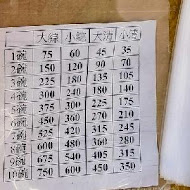 大綜 小綜 大冰 小冰
1碗 75 60 45 35
2碗 150 120 90 70
3碗 225 180 135 105
4碗 300 240 180 140
5碗 375 300 225 175
6碗 450 360 270 210
7碗 525 420 315 245
8碗 600 480 360 280
9碗 675 540 405 315
10碗 750 600 450 350